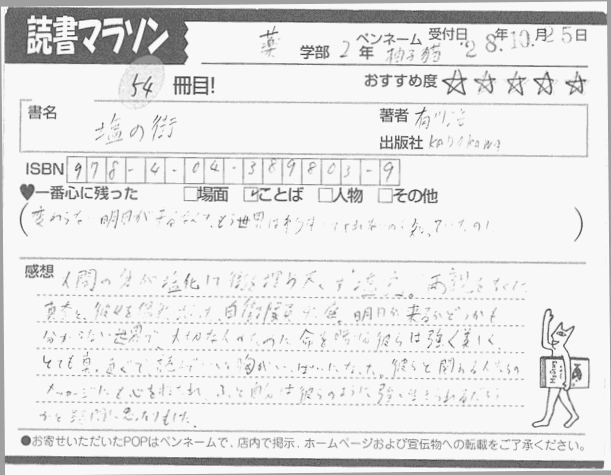 読書マラソン
薬 学部 2年 ペンネーム 柚子猫 受付日 '28年10月25日
54 冊目!
おすすめ度 ☆☆☆☆☆
書名 塩の街
著者 有川浩
出版社 KADOKAWA
ISBN 978-4-04-389803-9
♥一番心に残った □場面 ☑ことば □人物 □その他
(変わらない明日が来るなんて、もう世界は約束してくれないのを知っていたのに)
感想 人間の 塩化 街を埋め尽くす塩害。両親を亡くした
真奈と、彼女を 自衛隊員 秋庭。明日が来るかどうかも
分からない世界で、大切な人のために命を 彼らは強く美しく
とても真っすぐで、読んでいて胸がいっぱいになった。彼らと関わる人たちの
メッセージにも心を打たれ、ふと自分は彼らのように強く生きられるだろう
かと 思ったりもした。
●お寄せいただいたPOPはペンネームで、店内で掲示、ホームページおよび宣伝物への転載をご了承ください。